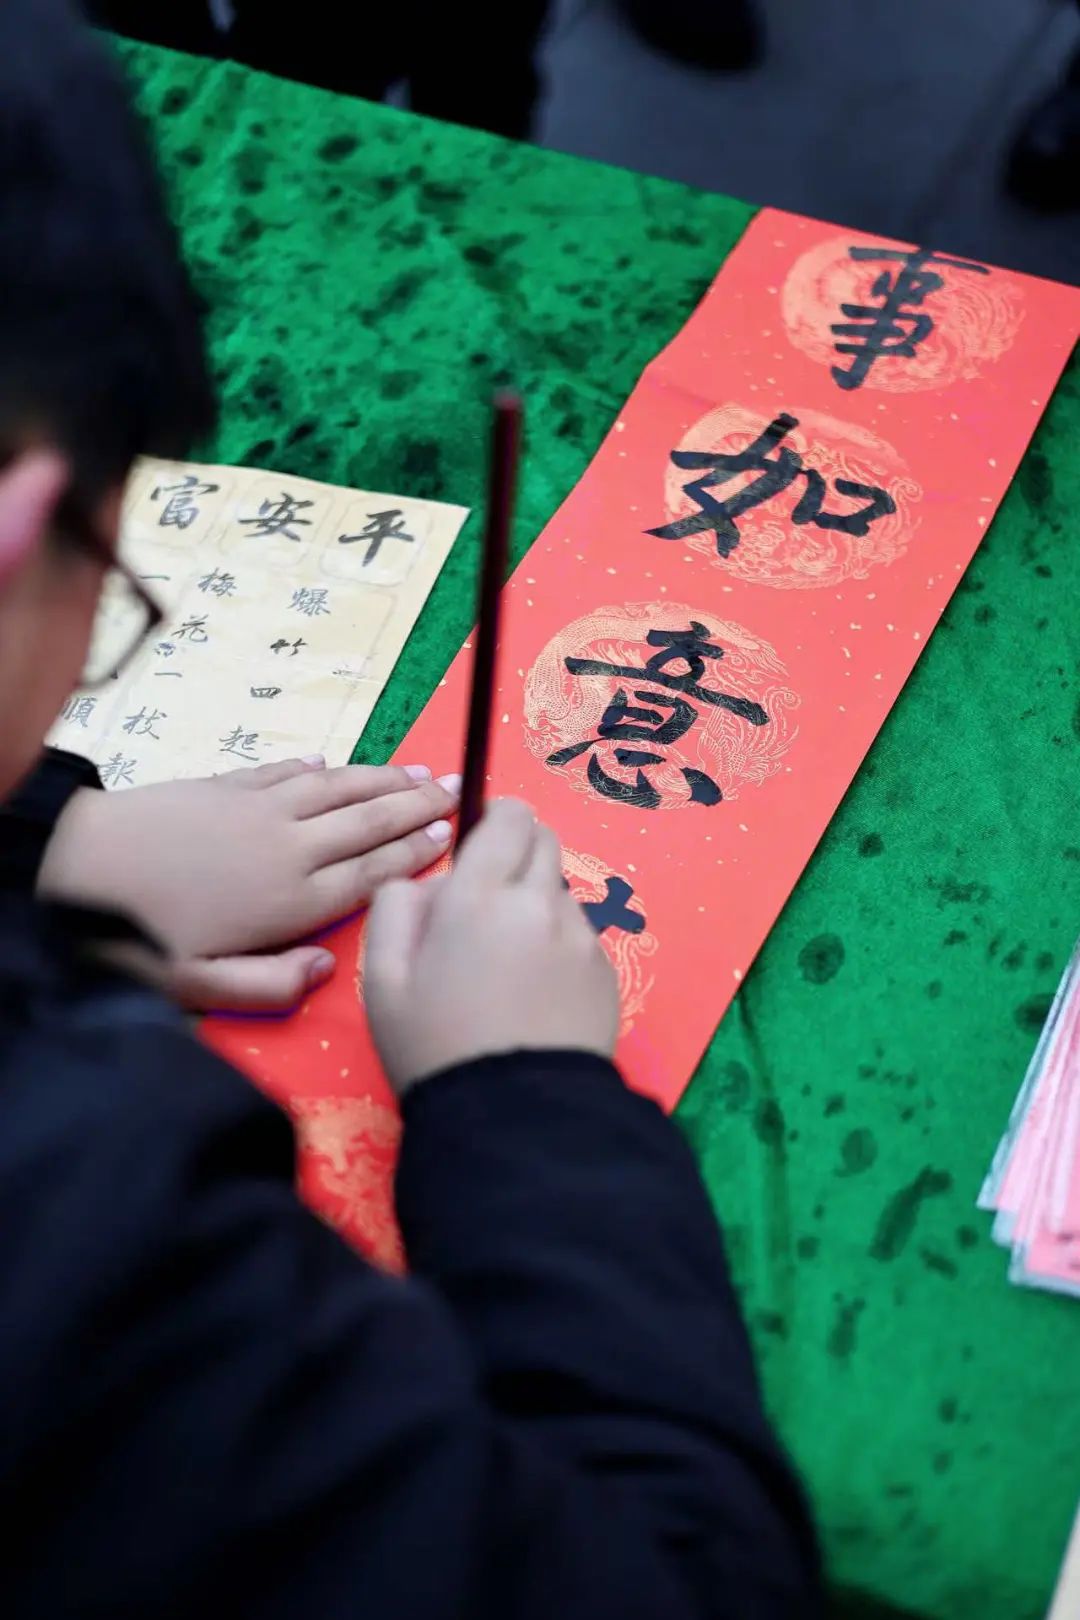 事如意
平安富
爆竹四起
梅花一枝報
順